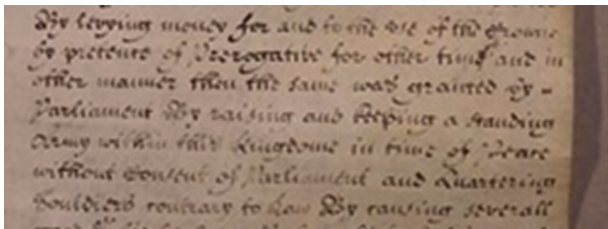 By levying money for and to the use of the Crowne
by pretence of Prerogative for other time and in
other manner then the same was granted by -
Parliament By raising and keeping a standing
Army within this Kingdome in time of Peace
without consent of Parliament and Quartering
Souldiers contrary to Law By causing severall